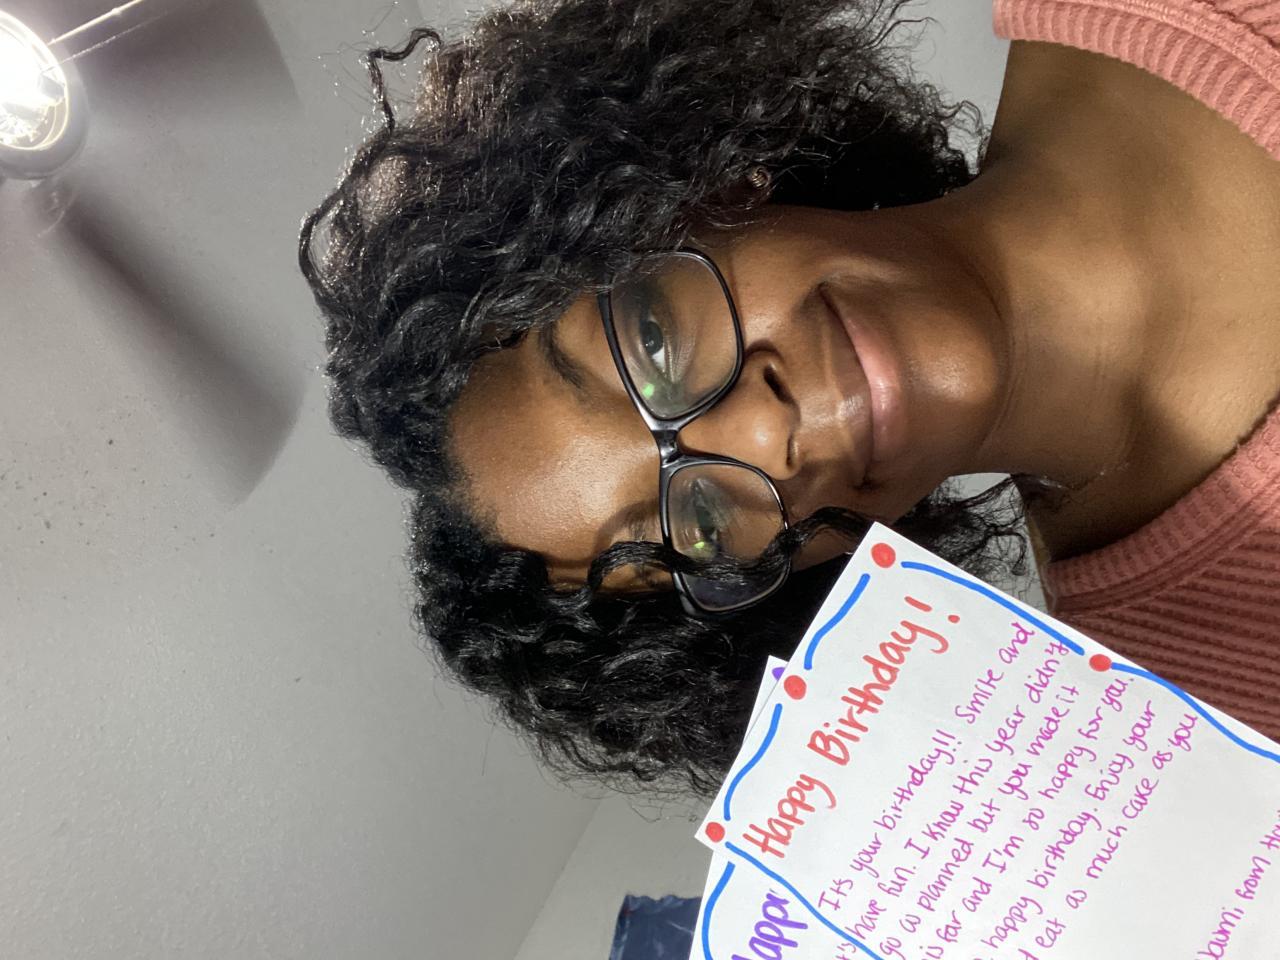 Happy Birthday!
It's your birthday!! Smile and
have fun. I know this year didn't
go as planned but you made it
far and I'm so happy for you.
happy birthday. Enjoy your
eat as much cake as you
from
Happy